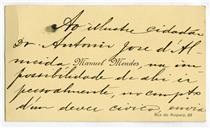 Ao illustre cidadão
Dr. Antonio José d'Al
meida, na im
Manuel Mendes
possibilidade de ahi ir
pessoalmente, no cumpto
d'um dever civico, envia
Rua do Rosario, 28